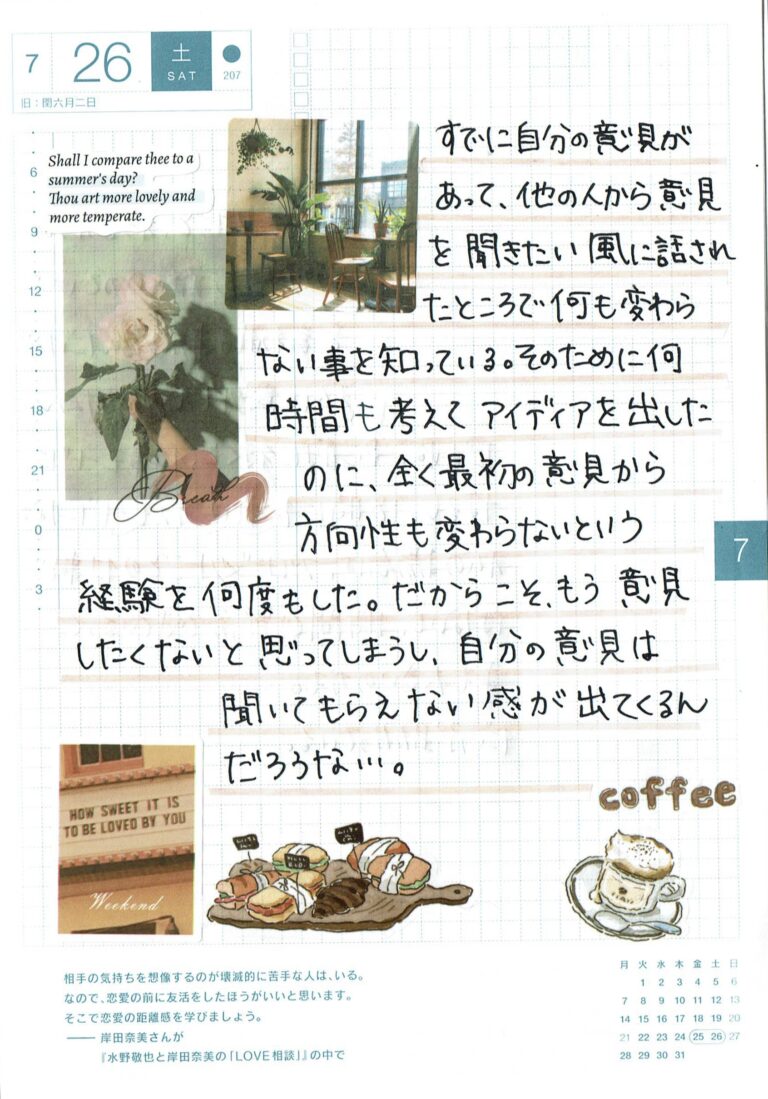 7
26
土
SAT
207
旧：閏六月二日
6
9
12
15
18
21
0
3
Shall I compare thee to a
summer's day?
Thou art more lovely and
more temperate.
すでに自分の意見が
あって、他の人から意見
を聞きたい風に話され
たところで何も変わら
ない事を知っている。そのために何
時間も考えてアイディアを出した
のに、全く最初の意見から
方向性も変わらないという
経験を何度もした。だからこそ、もう意見
したくないと思ってしまうし、自分の意見は
聞いてもらえない感が出てくるん
だろうな…。
7
HOW SWEET IT IS
TO BE LOVED BY YOU
Weekend
coffee
相手の気持ちを想像するのが壊滅的に苦手な人は、いる。
なので、恋愛の前に友活をしたほうがいいと思います。
そこで恋愛の距離感を学びましょう。
―― 岸田奈美さんが
『水野敬也と岸田奈美の「LOVE相談」』の中で
月 火 水 木 金 土 日
1 2 3 4 5 6
7 8 9 10 11 12 13
14 15 16 17 18 19 20
21 22 23 24 25 26 27
28 29 30 31